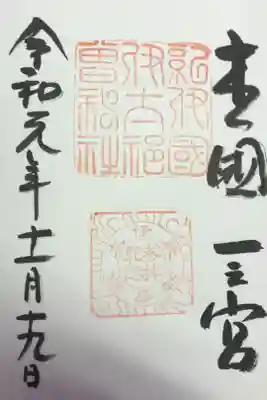 國 一之宮
紀伊國
伊太祁
曽神社
令和元年十一月十九日